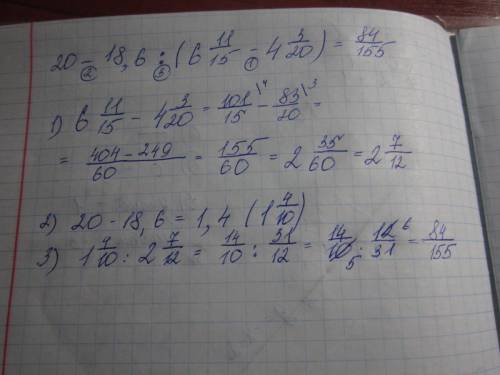 20 - 18,6 : (6 11/15 - 4 3/20) = 84/155
② ③ ①
1) 6 11/15 - 4 3/20 = 101/15 \4 - 83/20 \3 =
= 404-249/60 = 155/60 = 2 35/60 = 2 7/12
2) 20 - 18,6 = 1,4 (1 4/10)
3) 1 4/10 : 2 7/12 = 14/10 : 31/12 = 14/10 5 · 12/31 6 = 84/155